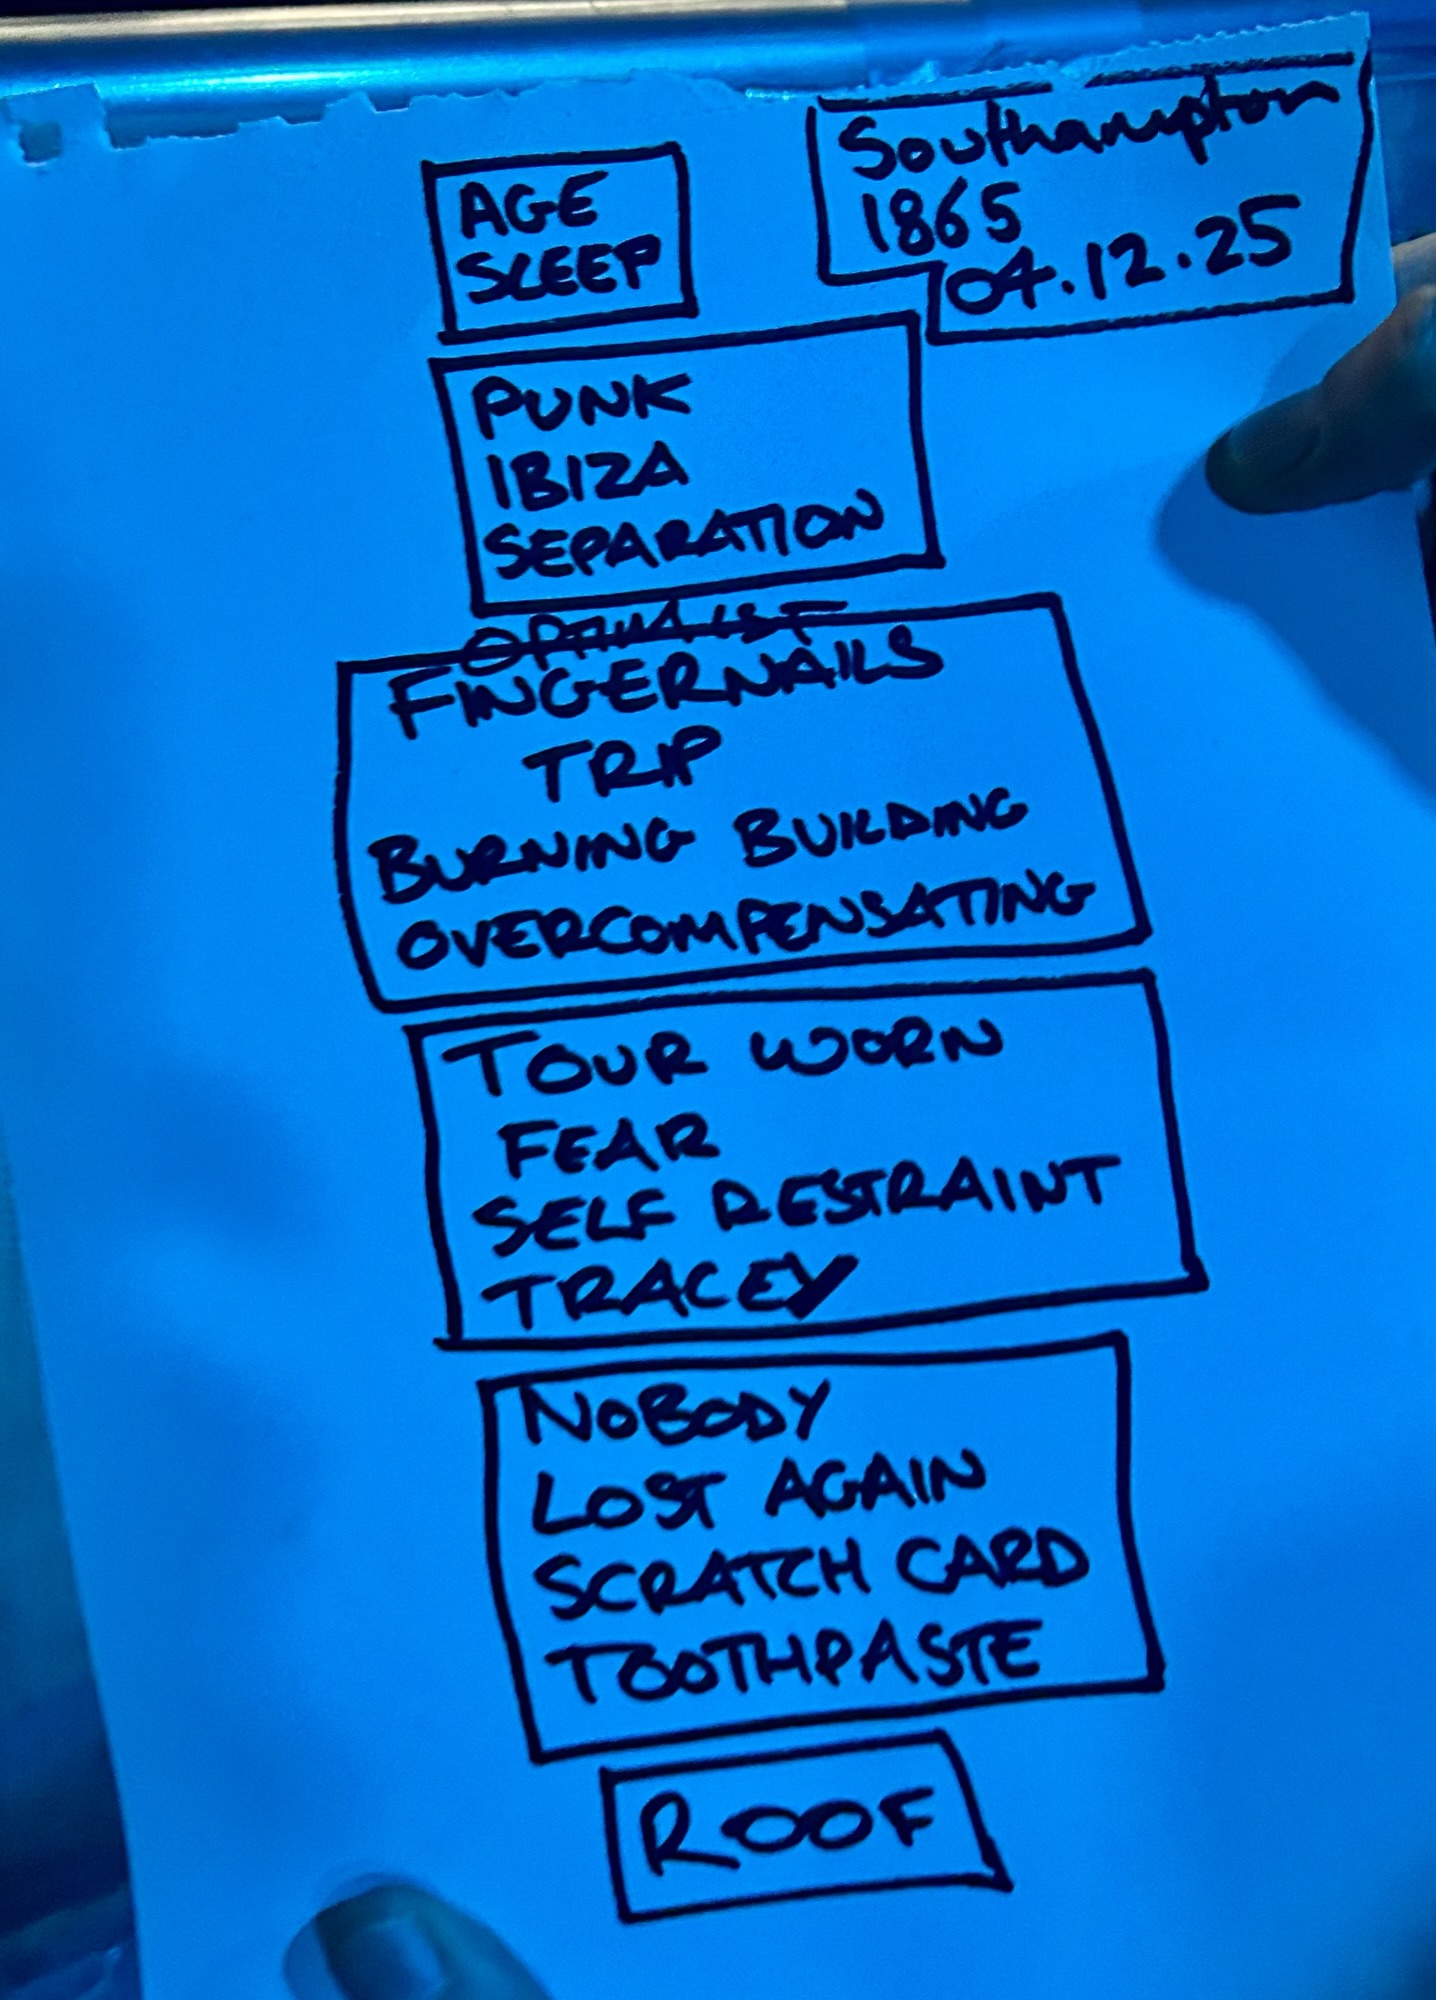 Southampton
1865
04.12.25
AGE
SLEEP
PUNK
IBIZA
SEPARATION
OPTIMIST
FINGERNAILS
TRIP
BURNING BUILDING
OVERCOMPENSATING
TOUR WORN
FEAR
SELF RESTRAINT
TRACEY
NOBODY
LOST AGAIN
SCRATCH CARD
TOOTHPASTE
ROOF